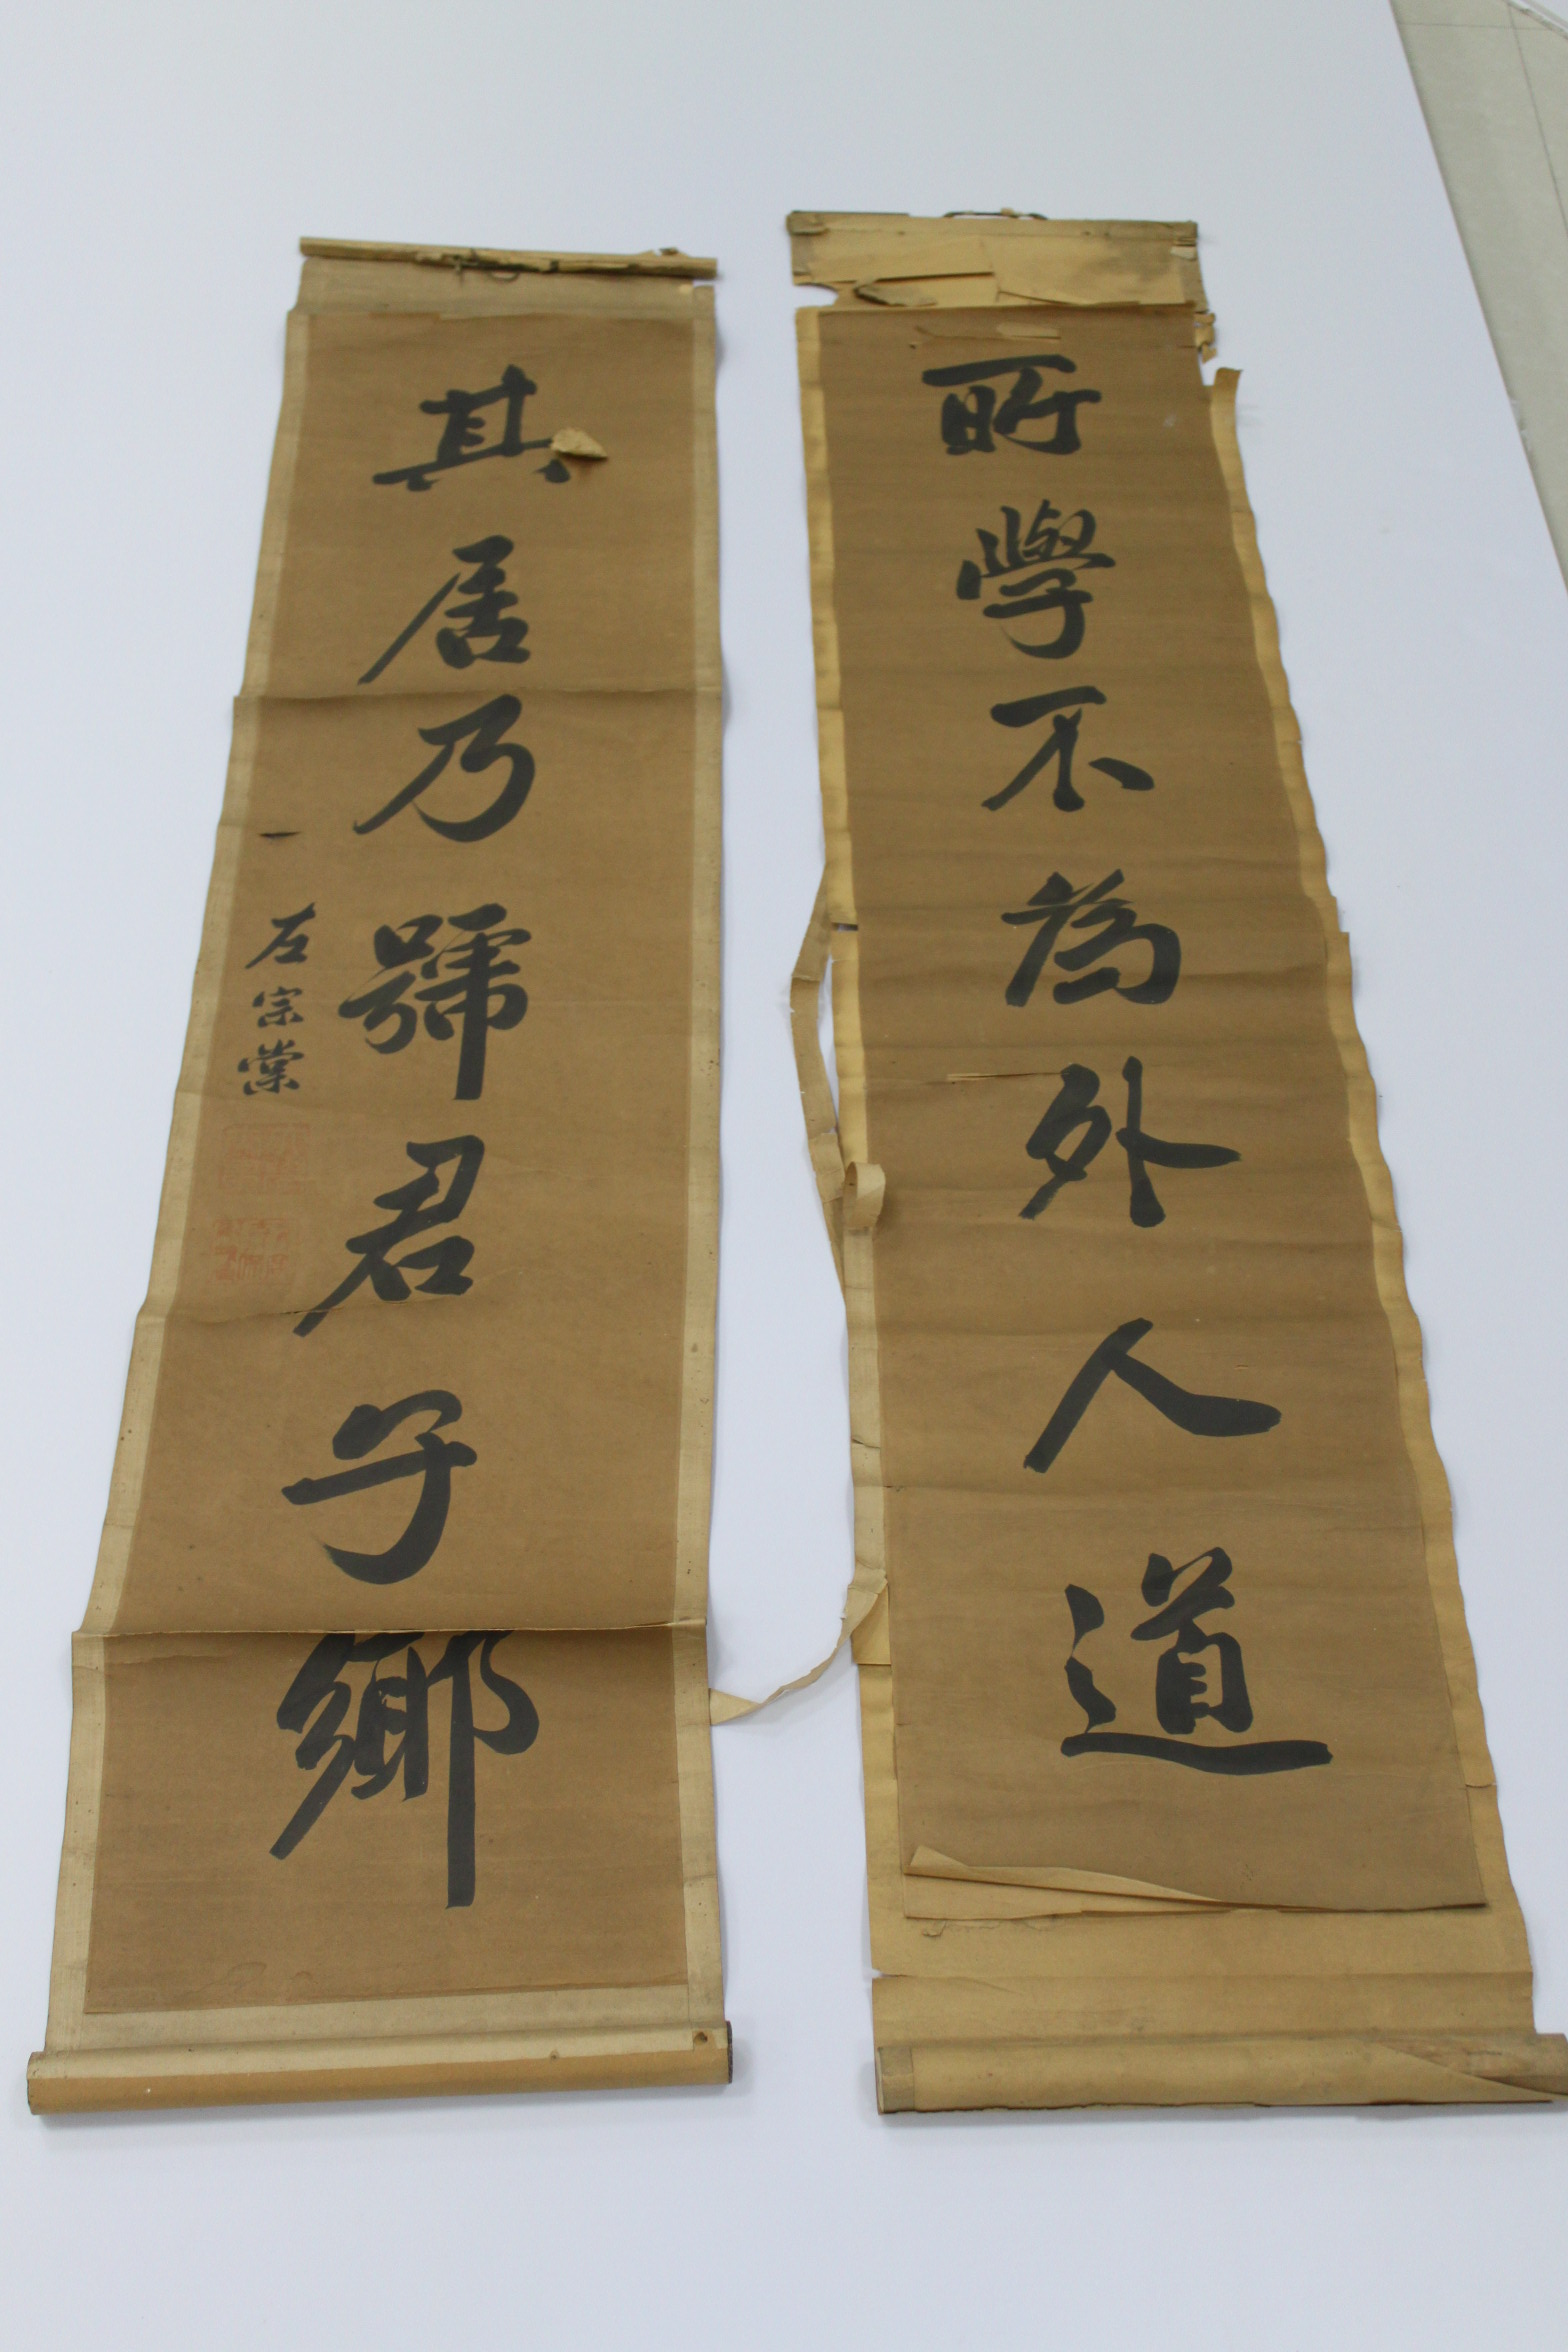 所學不為外人道
其居乃號君子鄉
左宗棠